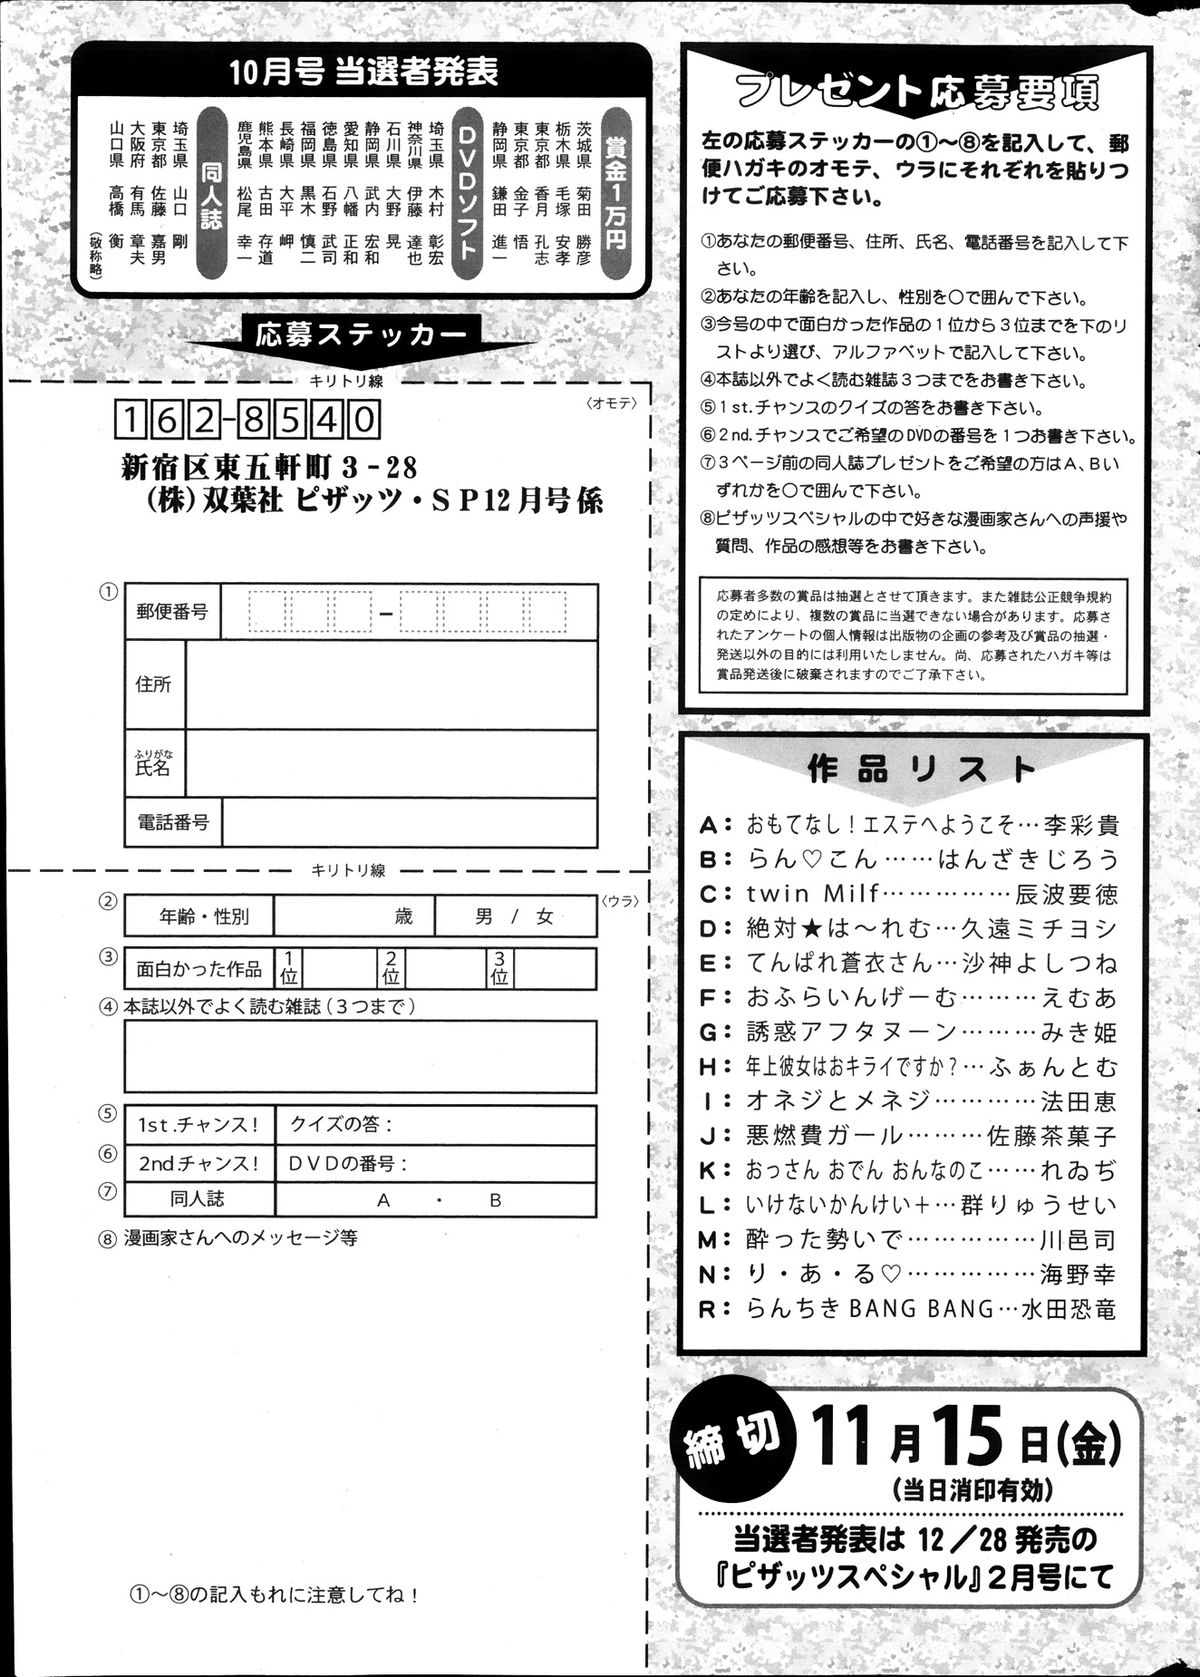 10月号 当選者発表
賞金1万円
茨城県 菊田 勝彦
栃木県 毛塚 安孝
東京都 香月 孔志
東京都 金子 悟
静岡県 鎌田 進一
DVDソフト
埼玉県 木村 彰宏
神奈川県 伊藤 達也
石川県 大野 晃
静岡県 武内 宏和
愛知県 八幡 正和
徳島県 石野 武司
福岡県 黒木 慎二
長崎県 大平 岬
熊本県 古田 存道
鹿児島県 松尾 幸一
同人誌
埼玉県 山口 剛
東京都 佐藤 嘉男
大阪府 有馬 章夫
山口県 高橋 衡
(敬称略)
応募ステッカー
キリトリ線
〈オモテ〉
162-8540
新宿区東五軒町3-28
(株)双葉社 ピザッツ・SP12月号係
①
郵便番号 -
住所
ふりがな
氏名
電話番号
キリトリ線
〈ウラ〉
② 年齢・性別 歳 男 / 女
③ 面白かった作品 1位 2位 3位
④ 本誌以外でよく読む雑誌(3つまで)
⑤ 1st.チャンス! クイズの答:
⑥ 2nd.チャンス! DVDの番号:
⑦ 同人誌 A ・ B
⑧ 漫画家さんへのメッセージ等
①〜⑧の記入もれに注意してね!
プレゼント応募要項
左の応募ステッカーの①〜⑧を記入して、郵
便ハガキのオモテ、ウラにそれぞれを貼りつ
けてご応募下さい。
①あなたの郵便番号、住所、氏名、電話番号を記入して下
さい。
②あなたの年齢を記入し、性別を○で囲んで下さい。
③今号の中で面白かった作品の1位から3位までを下のリ
ストより選び、アルファベットで記入して下さい。
④本誌以外でよく読む雑誌3つまでをお書き下さい。
⑤1st.チャンスのクイズの答をお書き下さい。
⑥2nd.チャンスでご希望のDVDの番号を1つお書き下さい。
⑦3ページ前の同人誌プレゼントをご希望の方はA、Bい
ずれかを○で囲んで下さい。
⑧ピザッツスペシャルの中で好きな漫画家さんへの声援や
質問、作品の感想等をお書き下さい。
応募者多数の賞品は抽選とさせて頂きます。また雑誌公正競争規約
の定めにより、複数の賞品に当選できない場合があります。応募さ
れたアンケートの個人情報は出版物の企画の参考及び賞品の抽選・
発送以外の目的には利用いたしません。尚、応募されたハガキ等は
賞品発送後に破棄されますのでご了承下さい。
作品リスト
A:おもてなし!エステへようこそ…李彩貴
B:らん♡こん……はんざきじろう
C:twin Milf……………辰波要徳
D:絶対★は〜れむ…久遠ミチヨシ
E:てんぱれ蒼衣さん…沙神よしつね
F:おふらいんげーむ………えむあ
G:誘惑アフタヌーン………みき姫
H:年上彼女はおキライですか?…ふぁんとむ
I:オネジとメネジ…………法田恵
J:悪燃費ガール………佐藤茶菓子
K:おっさん おでん おんなのこ……れゐぢ
L:いけないかんけい+…群りゅうせい
M:酔った勢いで……………川邑司
N:り・あ・る♡……………海野幸
R:らんちきBANG BANG…水田恐竜
締切
11月15日(金)
(当日消印有効)
当選者発表は12/28発売の
『ピザッツスペシャル』2月号にて